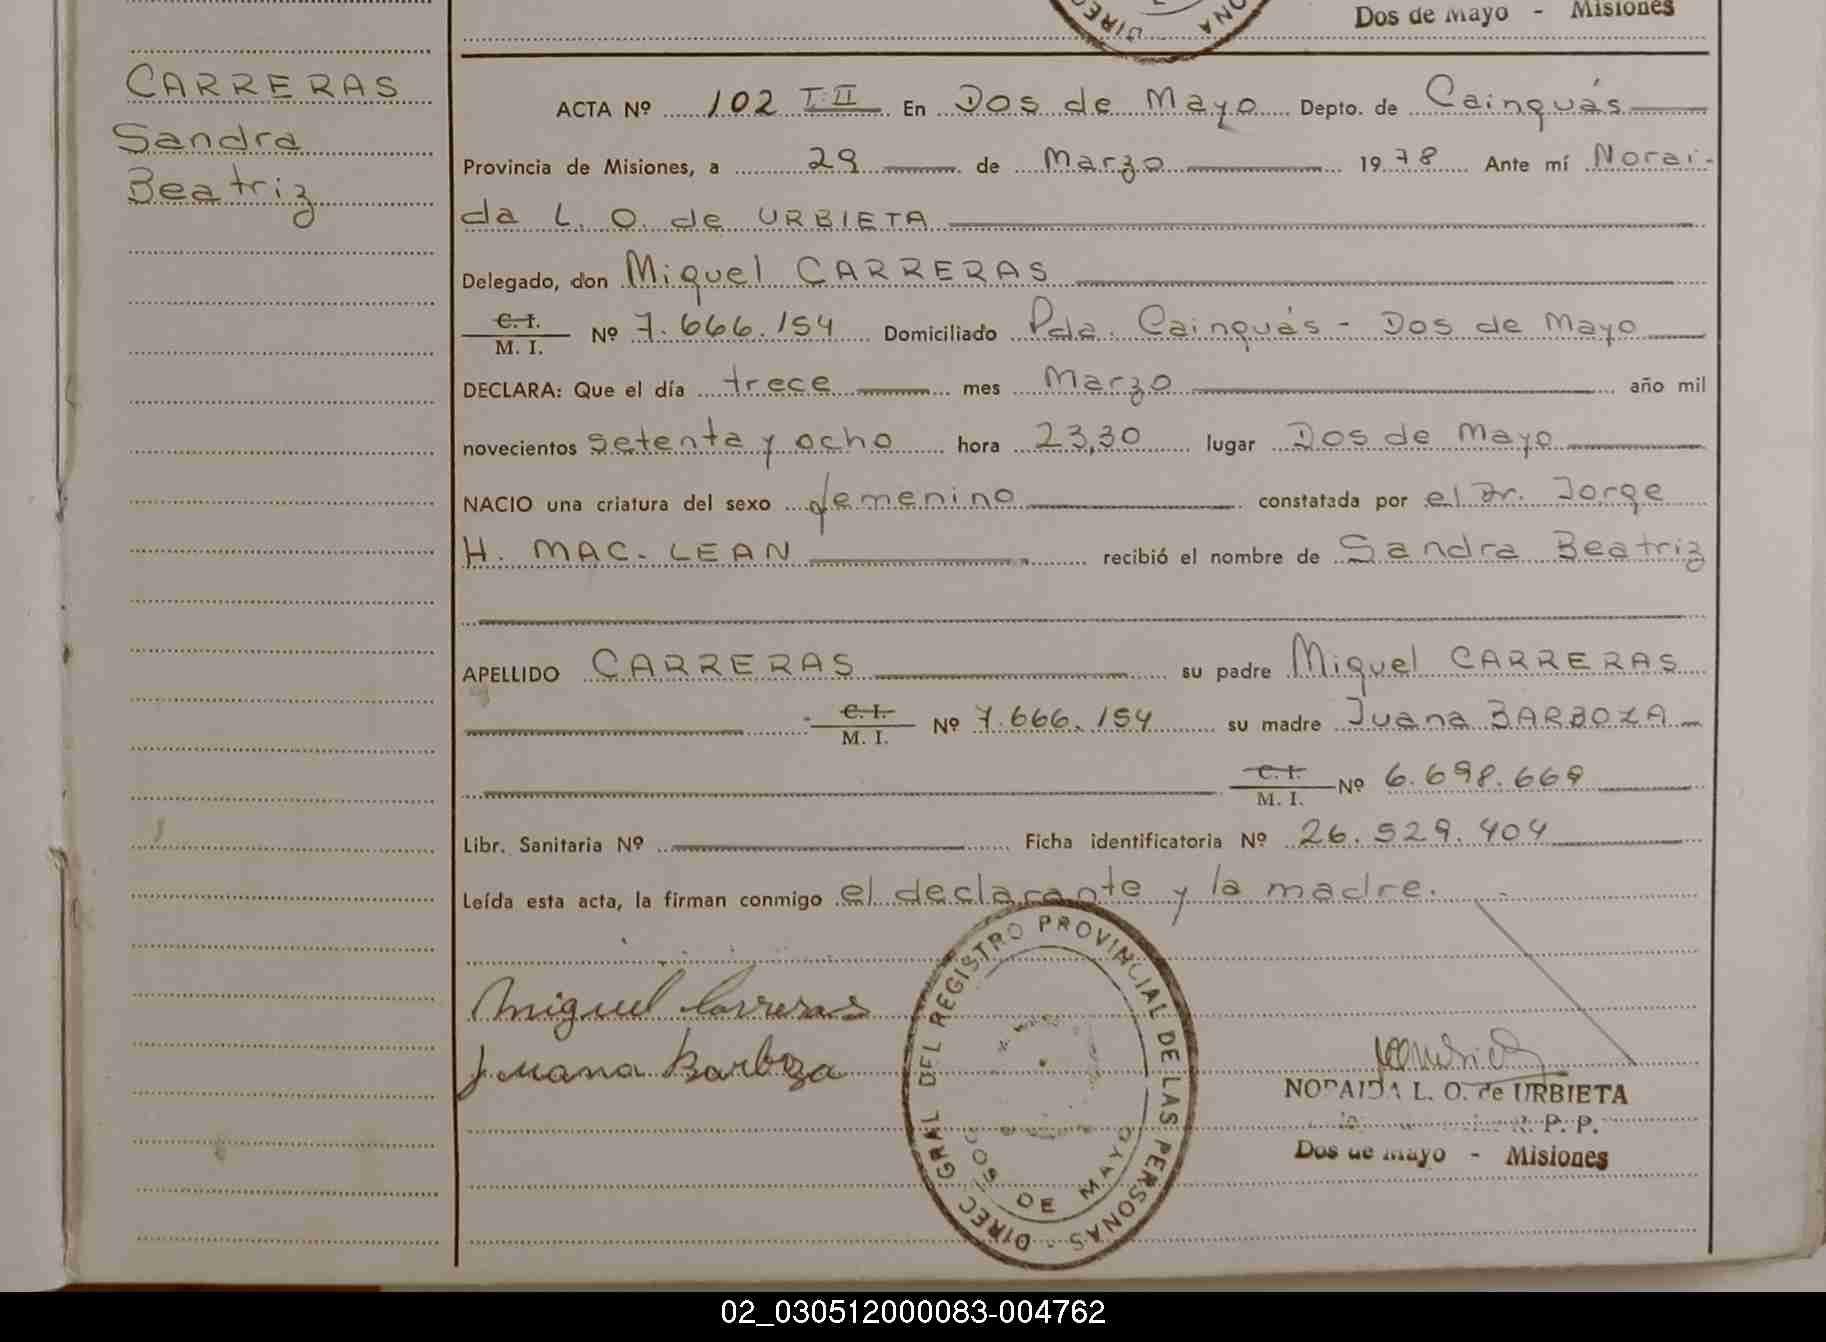 Dos de Mayo - Misiones
CARRERAS
Sandra
Beatriz
ACTA Nº 102 T. II En Dos de Mayo Depto. de Cainguás
Provincia de Misiones, a 29 de Marzo 1978 Ante mí Norai-
da L. O. de URBIETA
Delegado, don Miguel CARRERAS
C. I.
M. I. Nº 7.666.154 Domiciliado Pda. Cainguás - Dos de Mayo
DECLARA: Que el día trece mes Marzo año mil
novecientos setenta y ocho hora 23,30 lugar Dos de Mayo
NACIO una criatura del sexo femenino constatada por el Dr. Jorge
H. MAC-LEAN recibió el nombre de Sandra Beatriz
APELLIDO CARRERAS su padre Miguel CARRERAS
C. I.
M. I. Nº 7.666.154 su madre Juana BARBOZA
C. I.
M. I. Nº 6.698.669
Libr. Sanitaria Nº Ficha identificatoria Nº 26.529.404
Leída esta acta, la firman conmigo el declarante y la madre.
Miguel Carreras
Juana Barboza
DIREC GRAL DEL REGISTRO PROVINCIAL DE LAS PERSONAS -
DOS DE MAYO
NORAIDA L. O. de URBIETA
R. P. P.
Dos de Mayo - Misiones
02_030512000083-004762